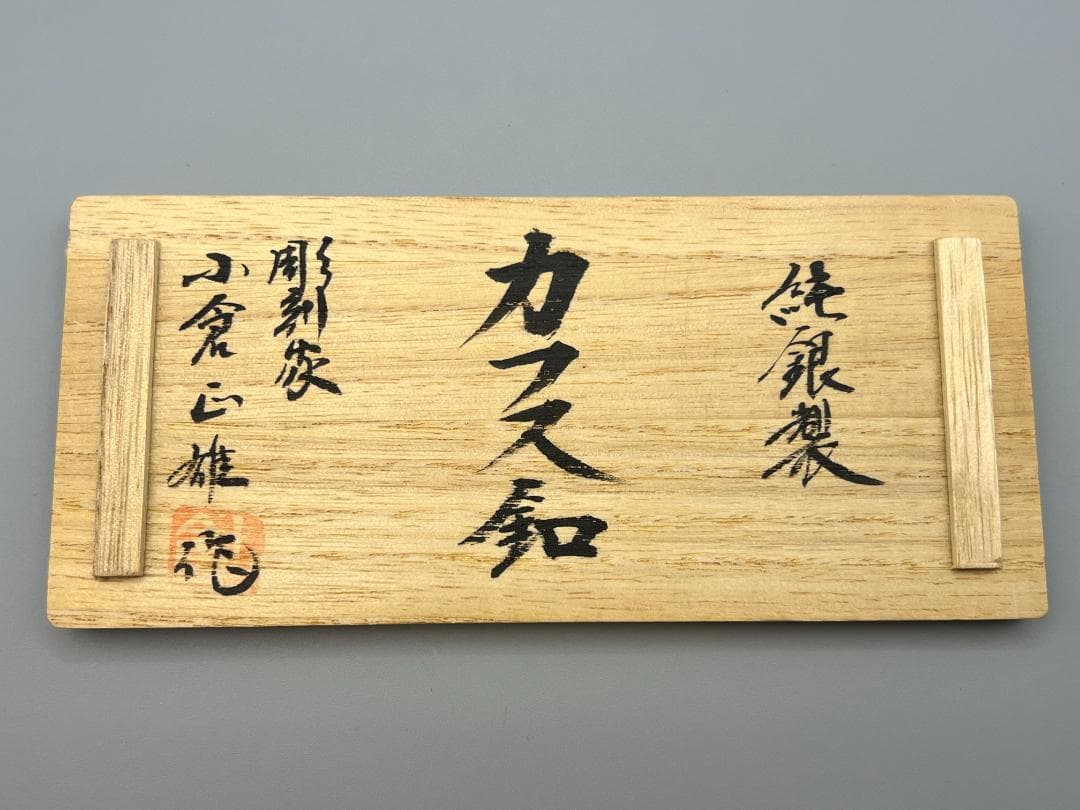 純銀製
カフス釦
彫刻家
小倉正雄作